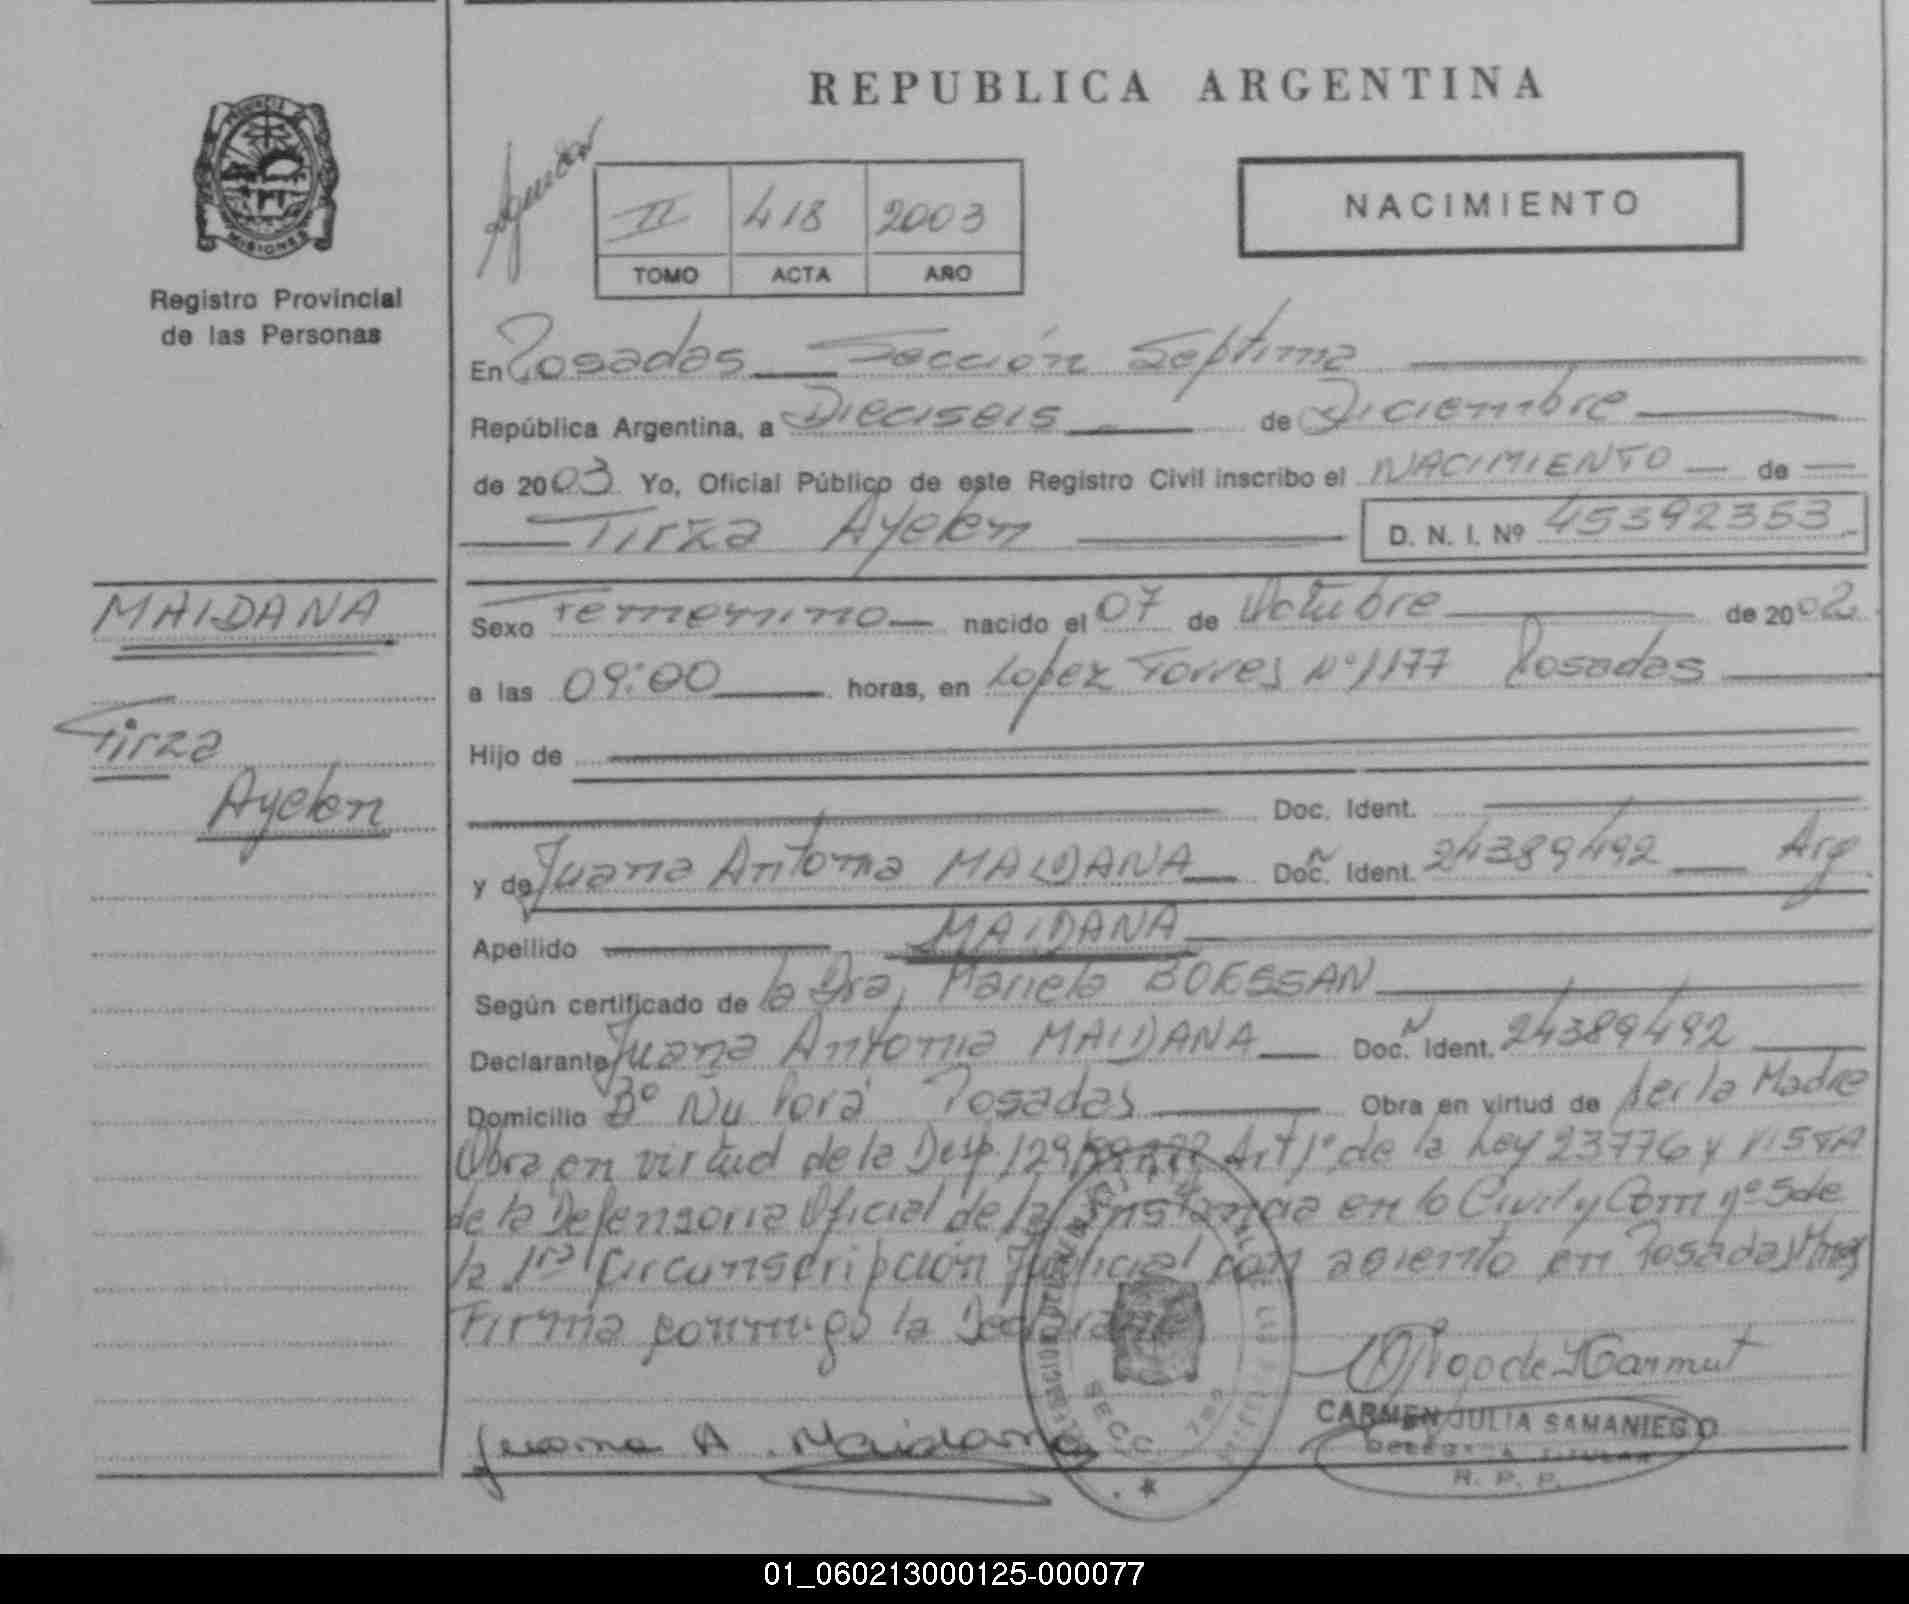 REPUBLICA ARGENTINA
PROVINCIA
MISIONES
Registro Provincial
de las Personas
II 418 2003
TOMO ACTA AÑO
NACIMIENTO
En Posadas Sección Septima
República Argentina, a Dieciseis de Diciembre
de 2003 Yo, Oficial Público de este Registro Civil inscribo el NACIMIENTO de
Tirza Ayelen D. N. I. Nº 45392353
MAIDANA
Tirza
Ayelen
Sexo Femenino nacido el 07 de Octubre de 2002
a las 09:00 horas, en Lopez Torres Nº 1177 Posadas
Hijo de
Doc. Ident.
y de Juana Antonia MAIDANA Doc. Ident. 24389492 Arg
Apellido MAIDANA
Según certificado de la Dra. Mariela BOESSAN
Declarante Juana Antonia MAIDANA Doc. Ident. 24389492
Domicilio Bº Ñu Porá Posadas Obra en virtud de ser la Madre
Obra en virtud de la Disp. Art 1º de la Ley 23776 y VISTA
de la Defensoria Oficial de 1ª Instancia en lo Civil y Com nº 5 de
la 1ra Circunscripción Judicial con asiento en Posadas Mnes
Firma conmigo la Declarante
Juana A. Maidana
SECC. 7ma
CARMEN JULIA SAMANIEGO
DELEGADA TITULAR
R. P. P.
01_060213000125-000077